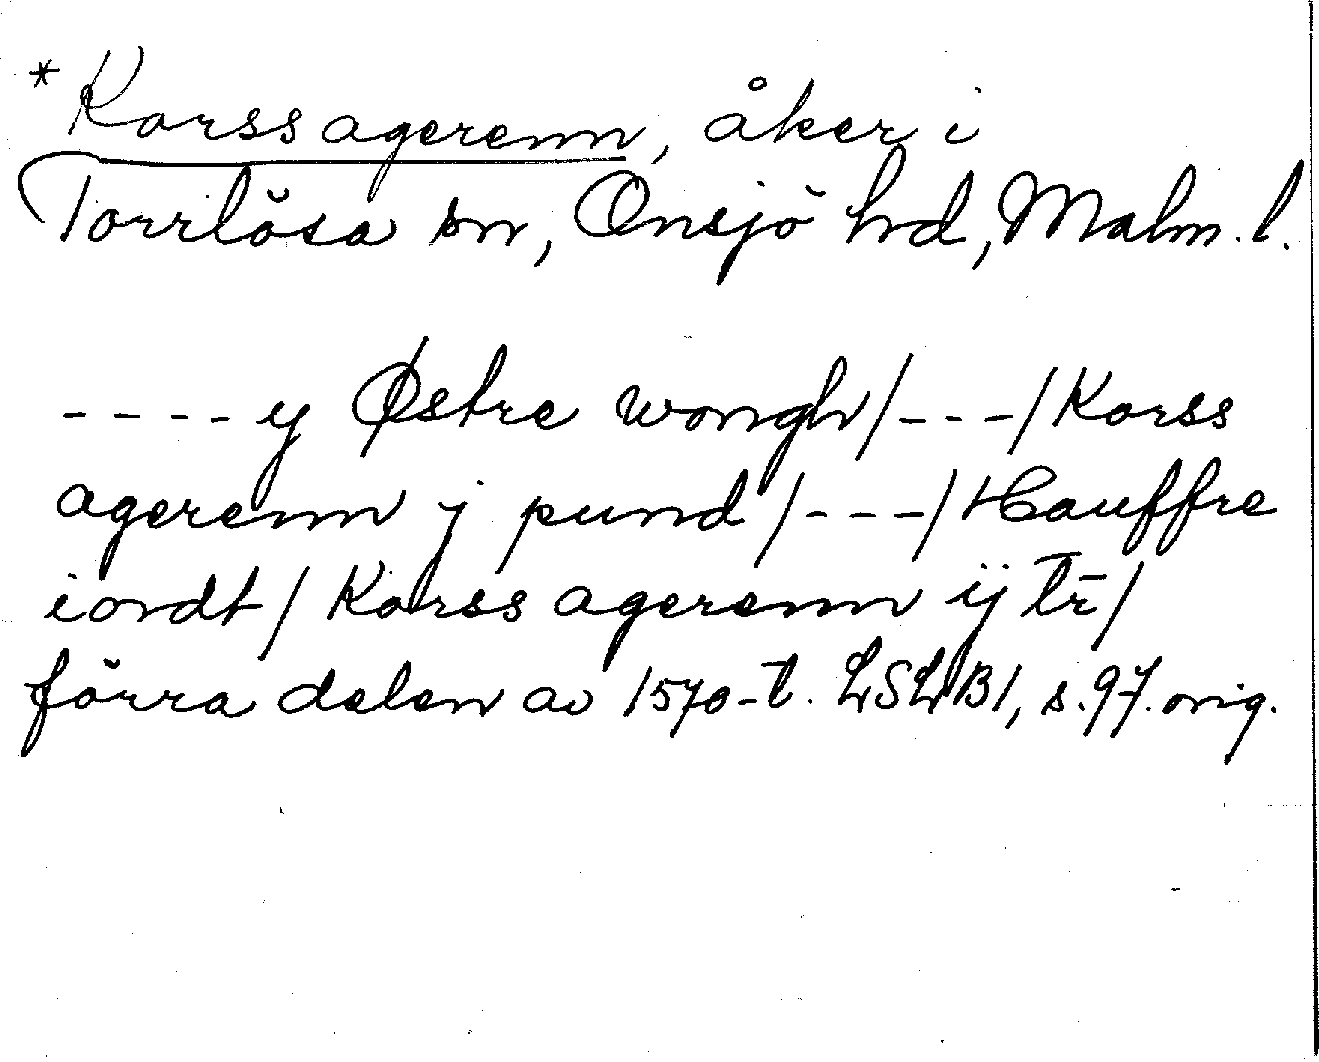 *Korss agerenn, åker i
Torrlösa sn, Onsjö hd, Malm. l.
---- y Østre wongh/---/Korss
agerenn j pund/---/Hauffre
iordt/Korss agerenn ij tr̄/
förra delen av 1570-t. LSLB1, s.97. orig.